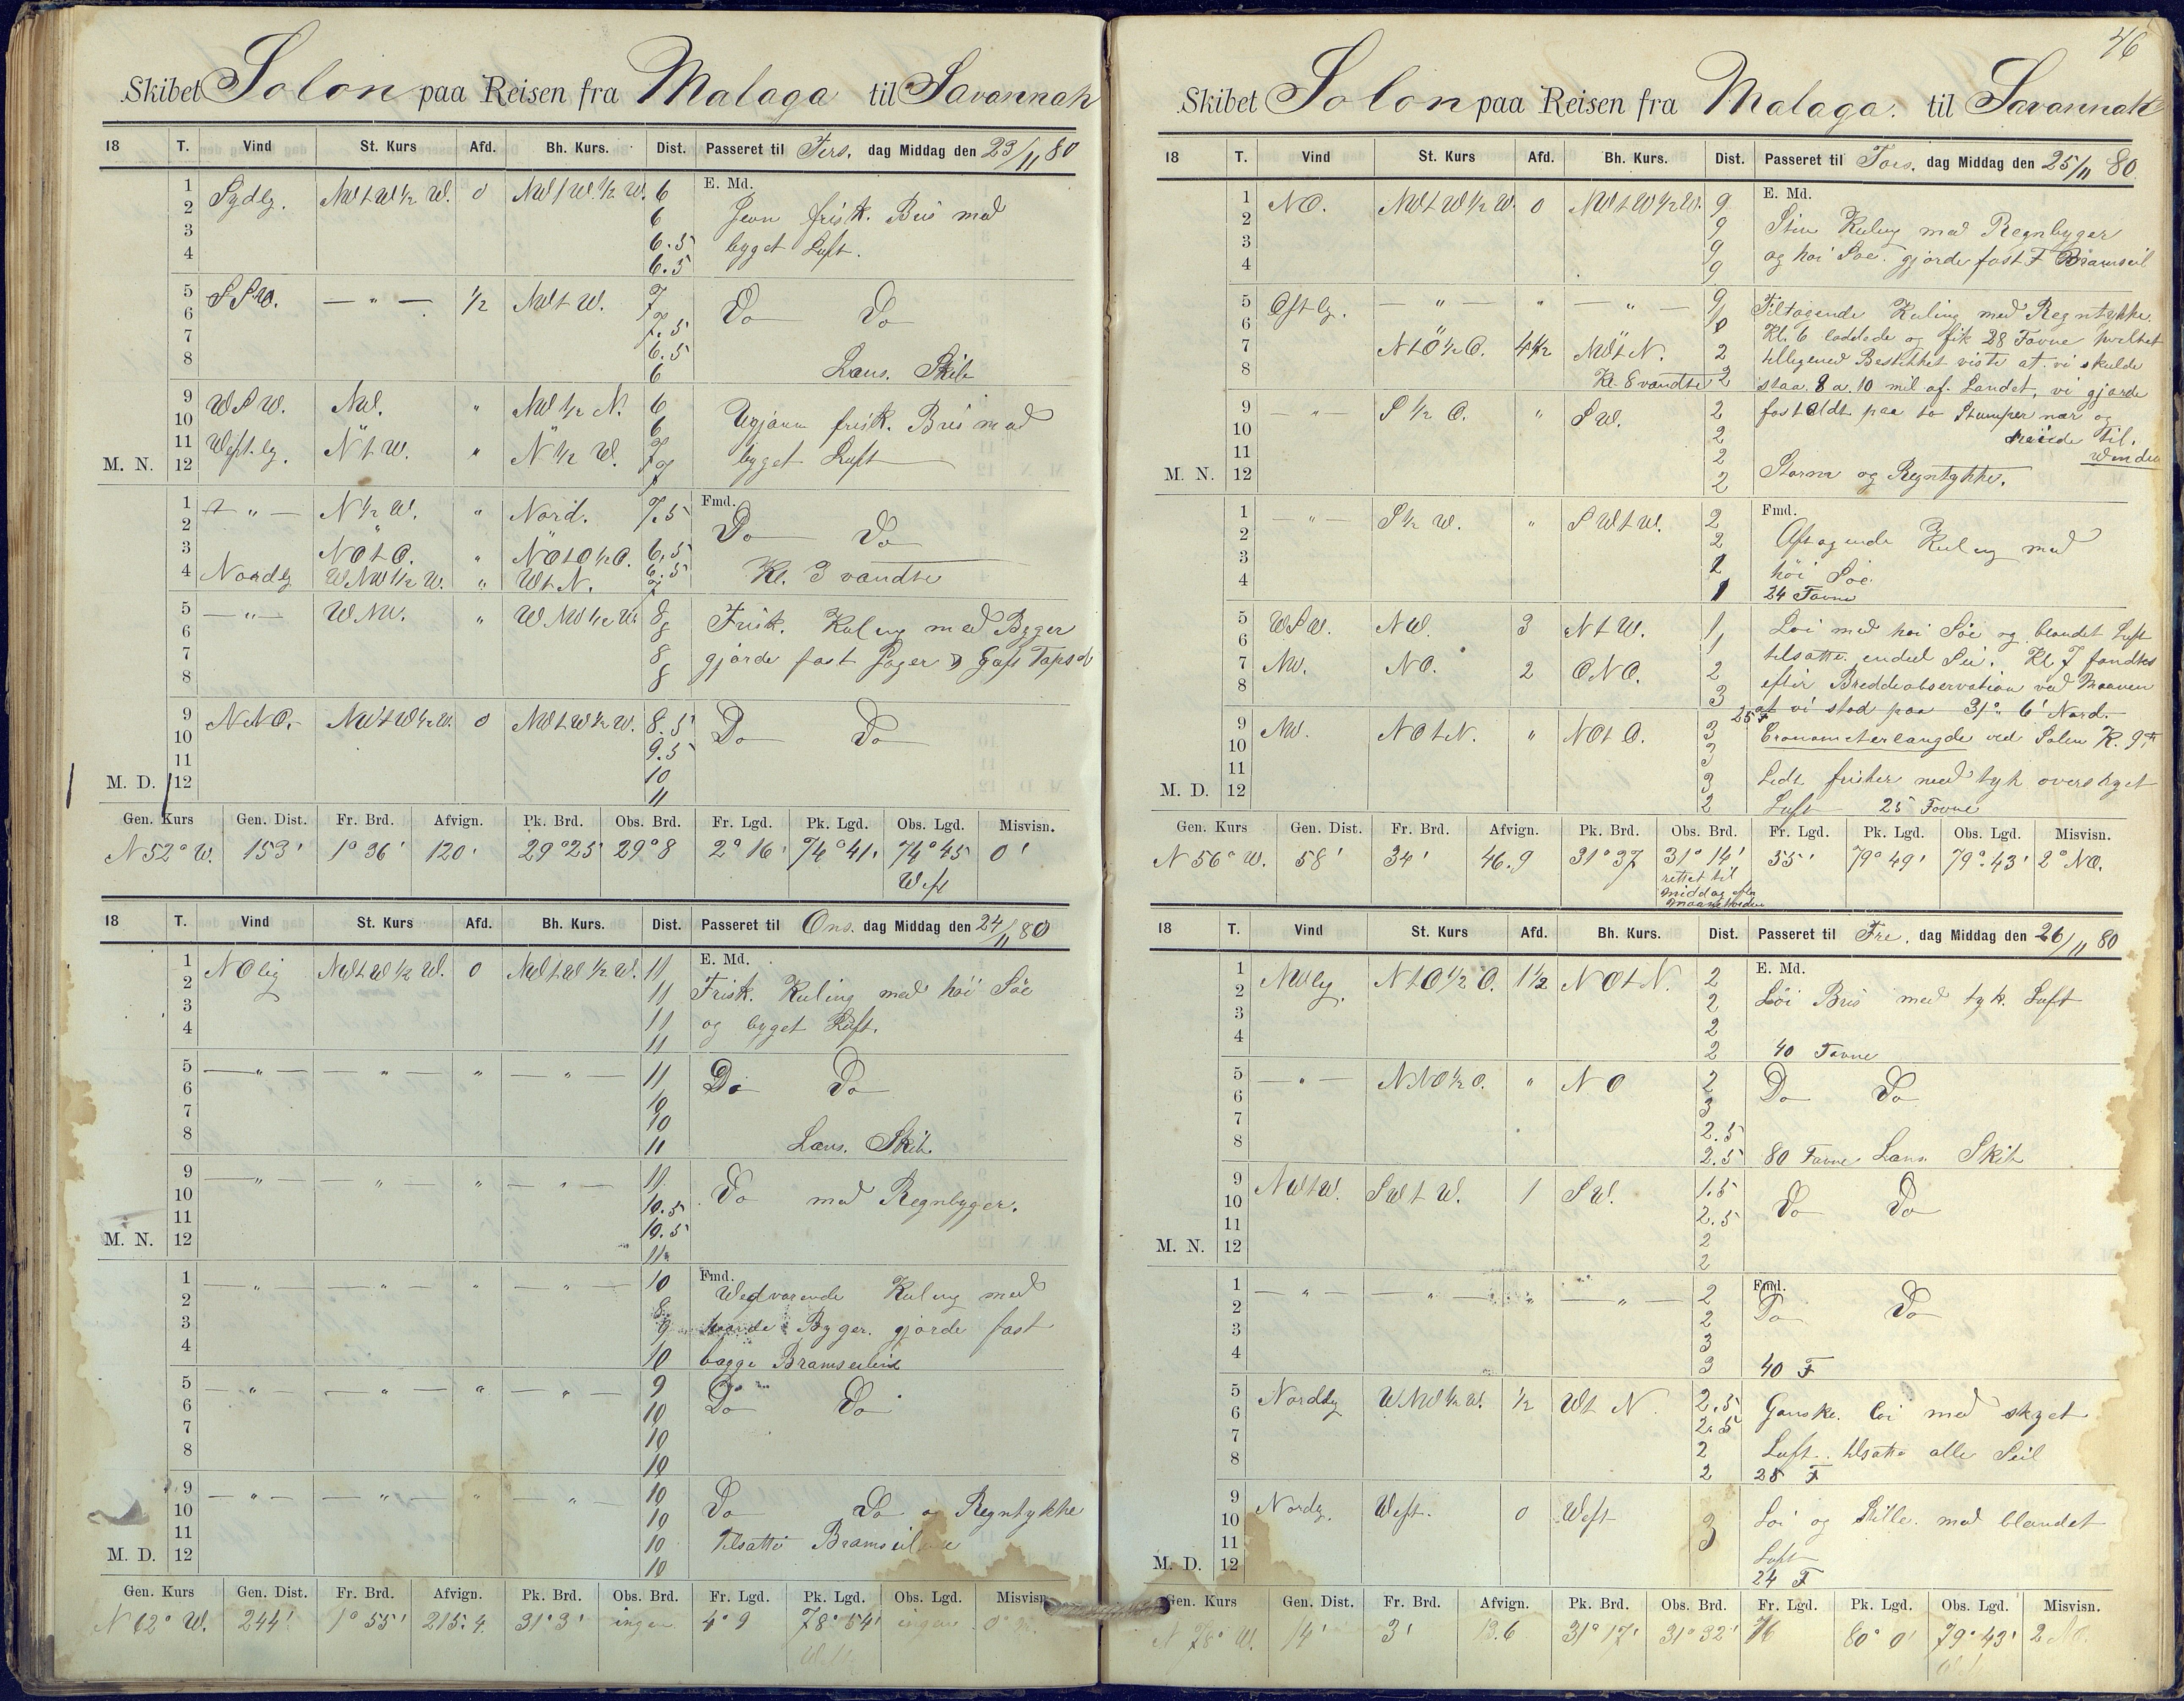 Skibet Solon paa Reisen fra Malaga til Savannah
18 T. Vind St. Kurs Afd. Bh. Kurs. Dist. Passeret til Tirs. dag Middag den 23/11 80
1 Sydlg. NWtW½W. 0 NWtW.½W. 6 E. Md.
2 6 Jevn frisk. Bris med
3 6.5 byget Luft.
4 6.5
5 SSW. — " — ½ NWtW. 7 Do Do
6 7.5
7 6.5
8 6 Læns. Skib
9 WSW. NW. " NW½N. 6 Ujævn frisk. Bris med
10 6
11 Westlg. NtW. " N½W. 7 byget Luft
M. N. 12 7
1 — " — N½W. " Nord. 7.5 Fmd.
2 Do Do
3 NOtO. " NOtO½O. 6.5
4 Nordlg WNW½W. " WtN. 6.5 Kl. 3 vandte
5 — " — WNW. " WNW½W. 8 Frisk. Kuling med Byger
6 8
7 8 gjorde fast Jager & Gaf Topseil
8 8
9 NNO. NWtW½W. 0 NWtW½W. 8.5 Do Do
10 9.5
11 10
M. D. 12 11
Gen. Kurs Gen. Dist. Fr. Brd. Afvign. Pk. Brd. Obs. Brd. Fr. Lgd. Pk. Lgd. Obs. Lgd. Misvisn.
N 52° W. 153' 1° 36' 120' 29° 25' 29° 8 2° 16' 74° 41' 74° 45 0'
West
18 T. Vind St. Kurs Afd. Bh. Kurs. Dist. Passeret til Ons. dag Middag den 24/11 80
1 NOlig NWtW½W. 0 NWtW½W. 11 E. Md.
2 11 Frisk. Kuling med høi Söe
3 11 og byget Luft.
4 11
5 — " — — " — " — " — 11 Do Do
6 10
7 10
8 11 Læns. Skib
9 — " — — " — " — " — 11
10 10.5 Do med Regnbyger.
11 10.5
M. N. 12 11
1 — " — — " — " — " — 10 Fmd.
Vedvarende Kuling med
2 8
3 9 haarde Byger. gjorde fast
4 10 begge Bramseilene
5 — " — — " — " — " — 9
6 10 Do Do
7 10
8 10
9 — " — — " — " — " — 10
10 10 Do Do og Regntykke
11 10 Tilsatte Bramseilene
M. D. 12 10
Gen. Kurs Gen. Dist. Fr. Brd. Afvign. Pk. Brd. Obs. Brd. Fr. Lgd. Pk. Lgd. Obs. Lgd. Misvisn.
N 62° W. 244' 1° 55' 215.4 31° 3' ingen 4° 9 78° 54' ingen
West
46
Skibet Solon paa Reisen fra Malaga. til Savannah
18 T. Vind St. Kurs Afd. Bh. Kurs. Dist. Passeret til Tors. dag Middag den 25/11 80
1 NO. NWtW½W. 0 NWtW½W. 9 E. Md.
2 9 Stiv Kuling med Regnbyger
3 9 og høi Söe. gjorde fast F Bramseil
4 9
5 Ostlg. — " — " — " — 9 Tiltagende Kuling med Regntykke.
6 Kl. 6 loddede og fik 28 Favne hvilket
7 NtO½O. 4½ NWtN. 2 tilligemed Bestikket viste at vi skulde
8 Kl. 8 vandte 2 staa. 8 a. 10 mil af. Landet, vi gjorde
9 — " — S½O. " SW. 2 fast aldt paa to Stumper nær og
10 2 dreiede til.
11 2 Winden
M. N. 12 2 Storm og Regntykke.
1 — " — S½W. " SWtW. 2 Fmd.
2 2 Aftagende Kuling med
3 2 høi Söe.
4 1 24 Favne
5 WSW. NW. 3 NtW. 1 Løi med høi Söe og blandet Luft
6 1 tilsatte endeel Sei. Kl. 7 fandtes
7 NW. NO. 2 ONO. 2 efter Breddeobservation ved Maanen
8 3 at vi stod paa 31° 6' Nord.
25 F
9 NW. NOtN. " NOtO. 3 Cronometerlængde ved Solen K. 9
10 3
11 3 Lidt frisker med tyk overskyet
M. D. 12 2 Luft 25 Favne
Gen. Kurs Gen. Dist. Fr. Brd. Afvign. Pk. Brd. Obs. Brd. Fr. Lgd. Pk. Lgd. Obs. Lgd. Misvisn.
N 56° W. 58' 34' 46.9 31° 37 31° 14' 55' 79° 49' 79° 43' 2° NO.
rettet til
middag efter
maanehøiden
18 T. Vind St. Kurs Afd. Bh. Kurs. Dist. Passeret til Fre. dag Middag den 26/11 80
1 NWlg. NtO½O. 1½ NOtN. 2 E. Md.
2 2 Löi Bris med tyk. Luft
3 2
4 2 40 Favne
5 — " — NNO½O. " NO 2 Do Do
6 3
7 2.5
8 2.5 80 Favne Læns. Skib
9 NWtW. SWtW. 1 SW. 1.5
10 2.5 Do Do
11 2
M. N. 12 2
1 — " — — " — " — " — 2 Fmd.
2 2 Do Do
3 3
4 3 40 F
5 Nordlg WNW½W. ½ WtN 2.5 Ganske. löi med skyet
6 2.5
7 2 Luft. tilsatte alle Seil
8 2 28 F
9 Nordlg. West. 0 West
10 3 Loi og Stille. med blandet
11 Luft
M. D. 12 24 F
Gen. Kurs Gen. Dist. Fr. Brd. Afvign. Pk. Brd. Obs. Brd. Fr. Lgd. Pk. Lgd. Obs. Lgd. Misvisn.
N 78° W. 14' 3' 13.6 31° 17' 31° 32' 16 80° 0' 79° 43' 2 NO.